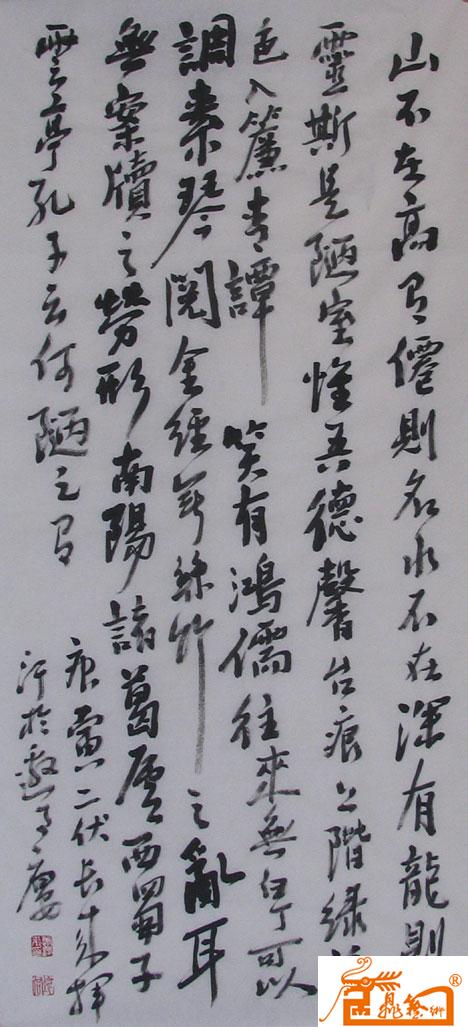 山不在高有僊則名水不在深有龍則
靈斯是陋室惟吾德馨台痕上階緑
色入簾青譚笑有鴻儒往來無白丁可以
調素琴閱金經無絲竹之亂耳
無案牘之勞形南陽諸葛廬西蜀子
雲亭孔子云何陋之有
庚寅二伏揮
汗於
藝術
®